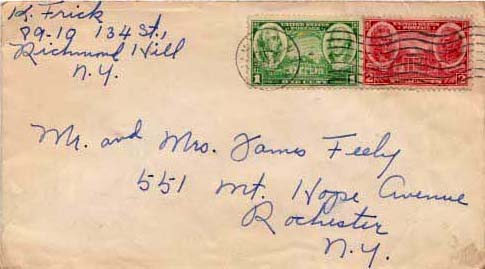 K. Frick
89-19 134 St.,
Richmond Hill
N.Y.
UNITED STATES
POSTAGE
1 1
UNITED STATES
POSTAGE
2 2
Mr. and Mrs. James Feely
551 Mt. Hope Avenue
Rochester
N.Y.